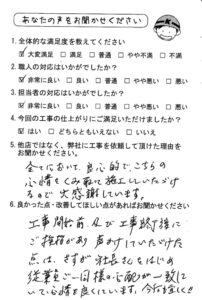 あなたの声をお聞かせください
1. 全体的な満足度を教えてください
☑ 大変満足 □ 満足 □ 普通 □ やや不満 □ 不満
2. 職人の対応はいかがでしたか？
☑ 非常に良い □ 良い □ 普通 □ やや悪い □ 悪い
3. 担当者の対応はいかがでしたか？
☑ 非常に良い □ 良い □ 普通 □ やや悪い □ 悪い
4. 今回の工事の仕上がりにご満足いただけましたか？
☑ はい □ どちらともいえない □ いいえ
5. 他店ではなく、弊社に工事を依頼して頂けた理由を
お聞かせください。
全てにおいて良心的で、こちらの
心情をくみ取って施工していただける
ので大感謝しています。
6. 良かった点・改善してほしい点があればお聞かせください
工事開始前及び工事終了後に
ご挨拶があり声かけしていただけた
点は、さすが社長さんをはじめ
従業員ご一同様の心が一致に
いて心情を良くしています。